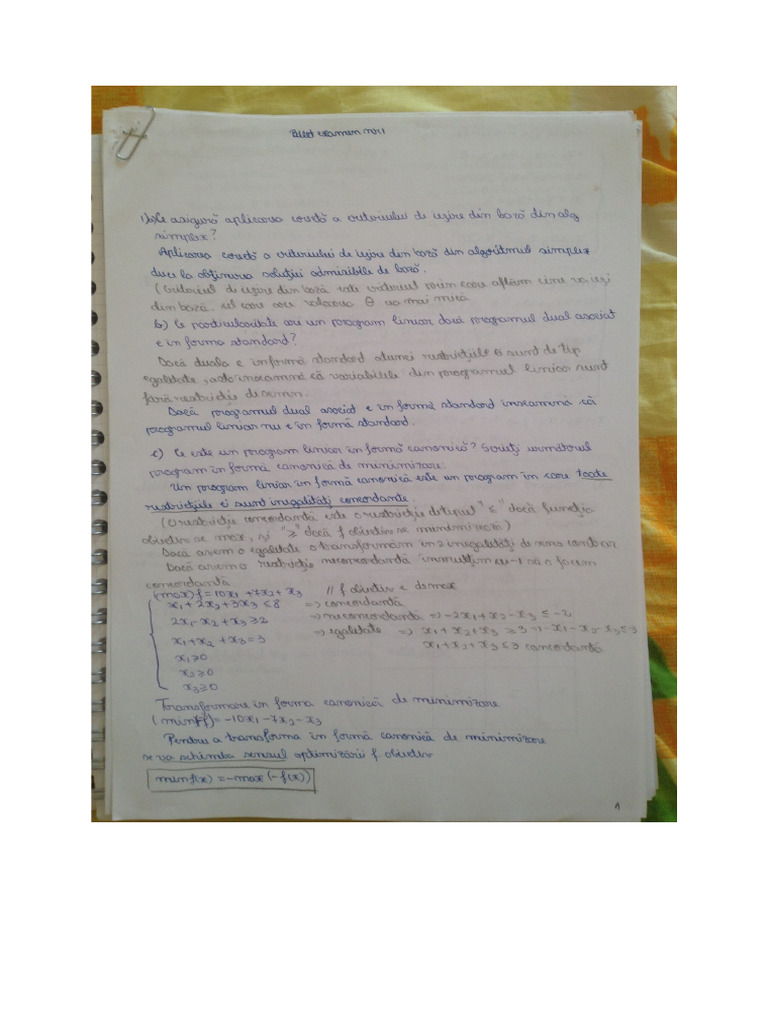 Bilet examen nr.1
1) a) Ce asigură aplicarea corectă a criteriului de ieșire din bază din alg
simplex?
Aplicarea corectă a criteriului de ieșire din bază din algoritmul simplex
duce la obținerea soluției admisibile de bază.
(Criteriul de ieșire din bază este criteriul prin care aflăm cine va ieși
din bază, cel care are valoarea θ cea mai mică
b) Ce particularitate are un program liniar dacă programul dual asociat
e în forma standard?
Dacă duala e în formă standard atunci restricțiile ei sunt de tip
egalitate, asta înseamnă că variabilele din programul liniar sunt
fără restricție de semn.
Dacă programul dual asociat e în formă standard înseamnă că
programul liniar nu e în formă standard.
c) Ce este un program liniar în formă canonică? Scrieți următorul
program în formă canonică de minimizare.
Un program liniar în formă canonică este un program în care toate
restricțiile ei sunt inegalități concordante.
(O restricție concordantă este o restricție de tipul "≤" dacă funcția
obiectiv se max, și "≥" dacă f obiectiv se minimizază)
Dacă avem o egalitate o transformăm în 2 inegalități de sens contrar
Dacă avem o restricție neconcordantă înmulțim cu -1 să o facem
concordantă
(max) f = 10x₁ + 7x₂ + x₃ // f obiectiv e de max
x₁ + 2x₂ + 3x₃ ≤ 8 => concordantă
2x₁ - x₂ + x₃ ≥ 2 => neconcordantă => -2x₁ + x₂ - x₃ ≤ -2
x₁ + x₂ + x₃ = 3 => egalitate => x₁ + x₂ + x₃ ≥ 3 => -x₁ - x₂ - x₃ ≤ 3
x₁ ≥ 0 x₁ + x₂ + x₃ ≤ 3 concordantă
x₂ ≥ 0
x₃ ≥ 0
Transformare în forma canonică de minimizare
(min) f = -10x₁ - 7x₂ - x₃
Pentru a transforma în formă canonică de minimizare
se va schimba sensul optimizării f obiectiv
min f(x) = -max (-f(x))
1